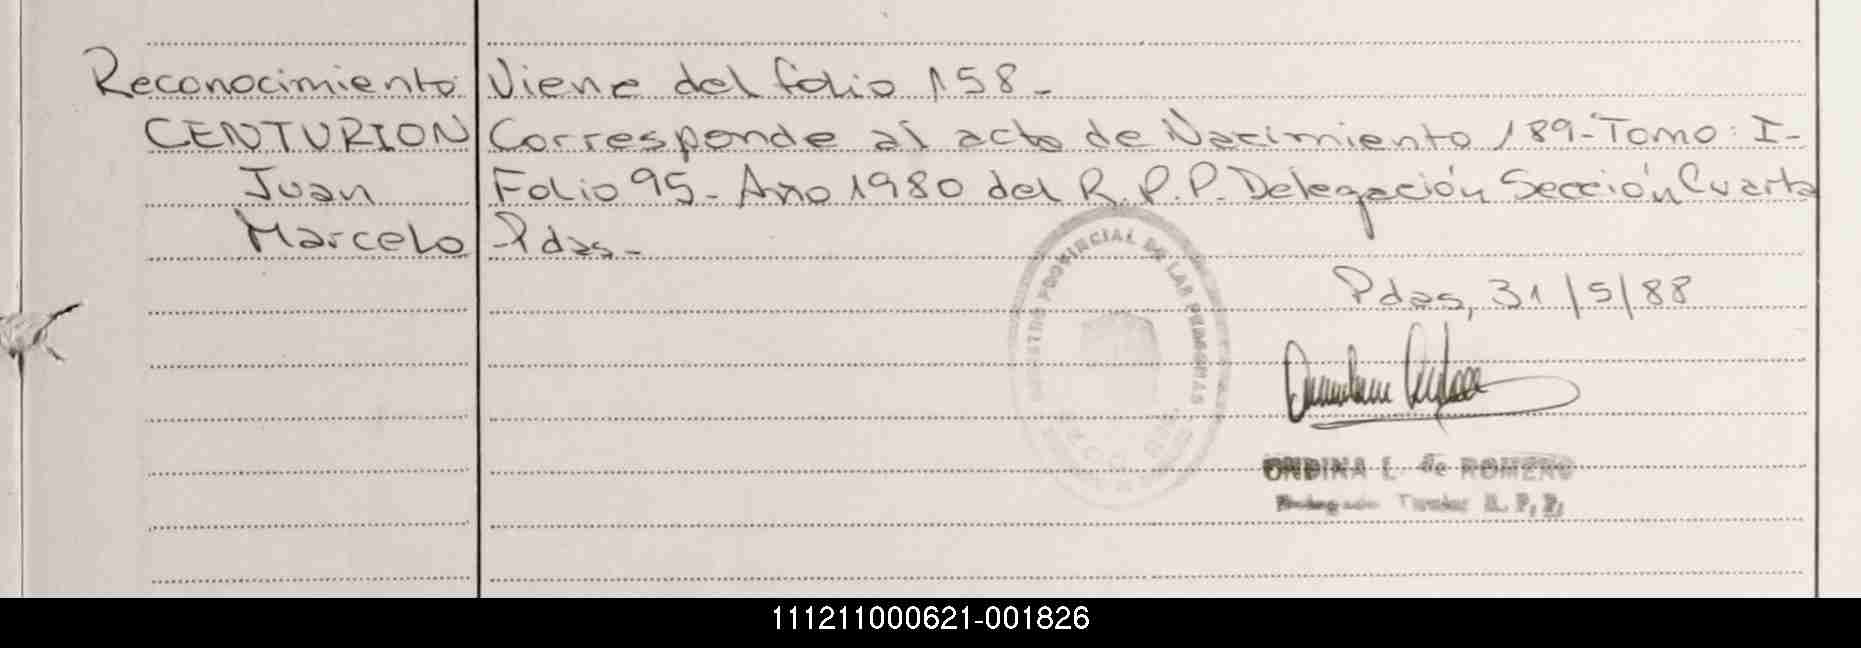 Reconocimiento Viene del folio 158-
CENTURION Corresponde al acta de Nacimiento 189-Tomo: I-
Juan Folio 95- Año 1980 del R.P.P. Delegación Sección Cuarta
Marcelo -Pdas-
Pdas, 31/5/88
PROVINCIAL DE LAS PERSONAS
ONDINA L. de ROMERO
Titular R. P. P.
111211000621-001826